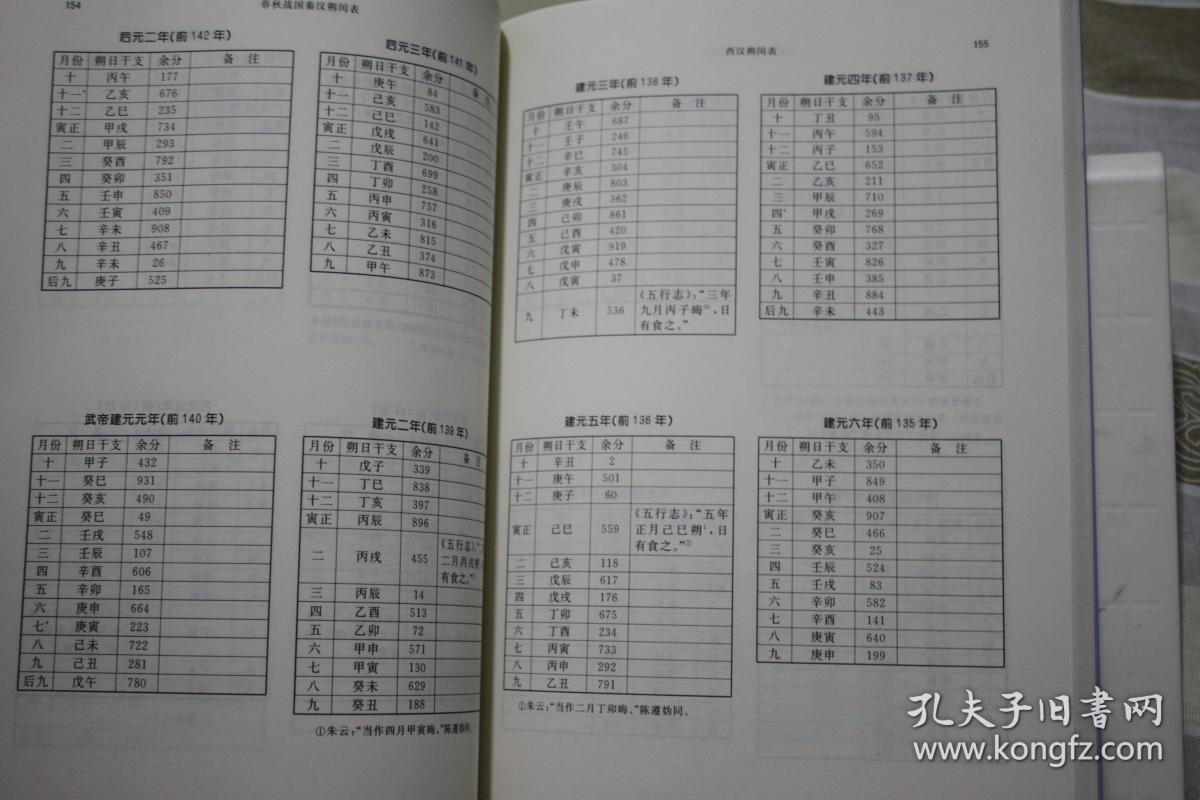 154 春秋战国秦汉朔闰表
后元二年(前142年)
月份 朔日干支 余分 备 注
十 丙午 177
十一* 乙亥 676
十二 乙巳 235
寅正 甲戌 734
二 甲辰 293
三 癸酉 792
四 癸卯 351
五 壬申 850
六 壬寅 409
七 辛未 908
八 辛丑 467
九 辛未 26
后九 庚子 525
后元三年(前141年)
月份 朔日干支 余分 备
十 庚午 84
十一 己亥 583
十二 己巳 142
寅正 戊戌 641
二 戊辰 200
三 丁酉 699
四 丁卯 258
五 丙申 757
六 丙寅 316
七 乙未 815
八 乙丑 374
九 甲午 873
武帝建元元年(前140年)
月份 朔日干支 余分 备 注
十 甲子 432
十一 癸巳 931
十二 癸亥 490
寅正 癸巳 49
二 壬戌 548
三 壬辰 107
四 辛酉 606
五 辛卯 165
六 庚申 664
七* 庚寅 223
八 己未 722
九 己丑 281
后九 戊午 780
建元二年(前139年)
月份 朔日干支 余分 备
十 戊子 339
十一 丁巳 838
十二 丁亥 397
寅正 丙辰 896
二 丙戌 455 《五行志》:“二
二月丙戌朔
有食之。”
三 丙辰 14
四 乙酉 513
五 乙卯 72
六 甲申 571
七 甲寅 130
八 癸未 629
九 癸丑 188
①朱云:“当作四月甲寅晦。”陈遵妫同。
西汉朔闰表 155
建元三年(前138年)
月份 朔日干支 余分 备 注
十 壬午 687
十一 壬子 246
十二 辛巳 745
寅正 辛亥 304
二 庚辰 803
三 庚戌 362
四 己卯 861
五 己酉 420
六 戊寅 919
七 戊申 478
八 戊寅 37
九 丁未 536 《五行志》:“三年
九月丙子晦,日
有食之。”
建元四年(前137年)
月份 朔日干支 余分 备 注
十 丁丑 95
十一 丙午 594
十二 丙子 153
寅正 乙巳 652
二 乙亥 211
三 甲辰 710
四* 甲戌 269
五 癸卯 768
六 癸酉 327
七 壬寅 826
八 壬申 385
九 辛丑 884
后九 辛未 443
建元五年(前136年)
月份 朔日干支 余分 备 注
十 辛丑 2
十一 庚午 501
十二 庚子 60
寅正 己巳 559 《五行志》:“五年
正月己巳朔,日
有食之。”①
二 己亥 118
三 戊辰 617
四 戊戌 176
五 丁卯 675
六 丁酉 234
七 丙寅 733
八 丙申 292
九 乙丑 791
①朱云:“当作二月丁卯晦。”陈遵妫同。
建元六年(前135年)
月份 朔日干支 余分 备 注
十 乙未 350
十一 甲子 849
十二 甲午 408
寅正 癸亥 907
二 癸巳 466
三 癸亥 25
四 壬辰 524
五 壬戌 83
六 辛卯 582
七 辛酉 141
八 庚寅 640
九 庚申 199
孔夫子旧书网
www.kongfz.com